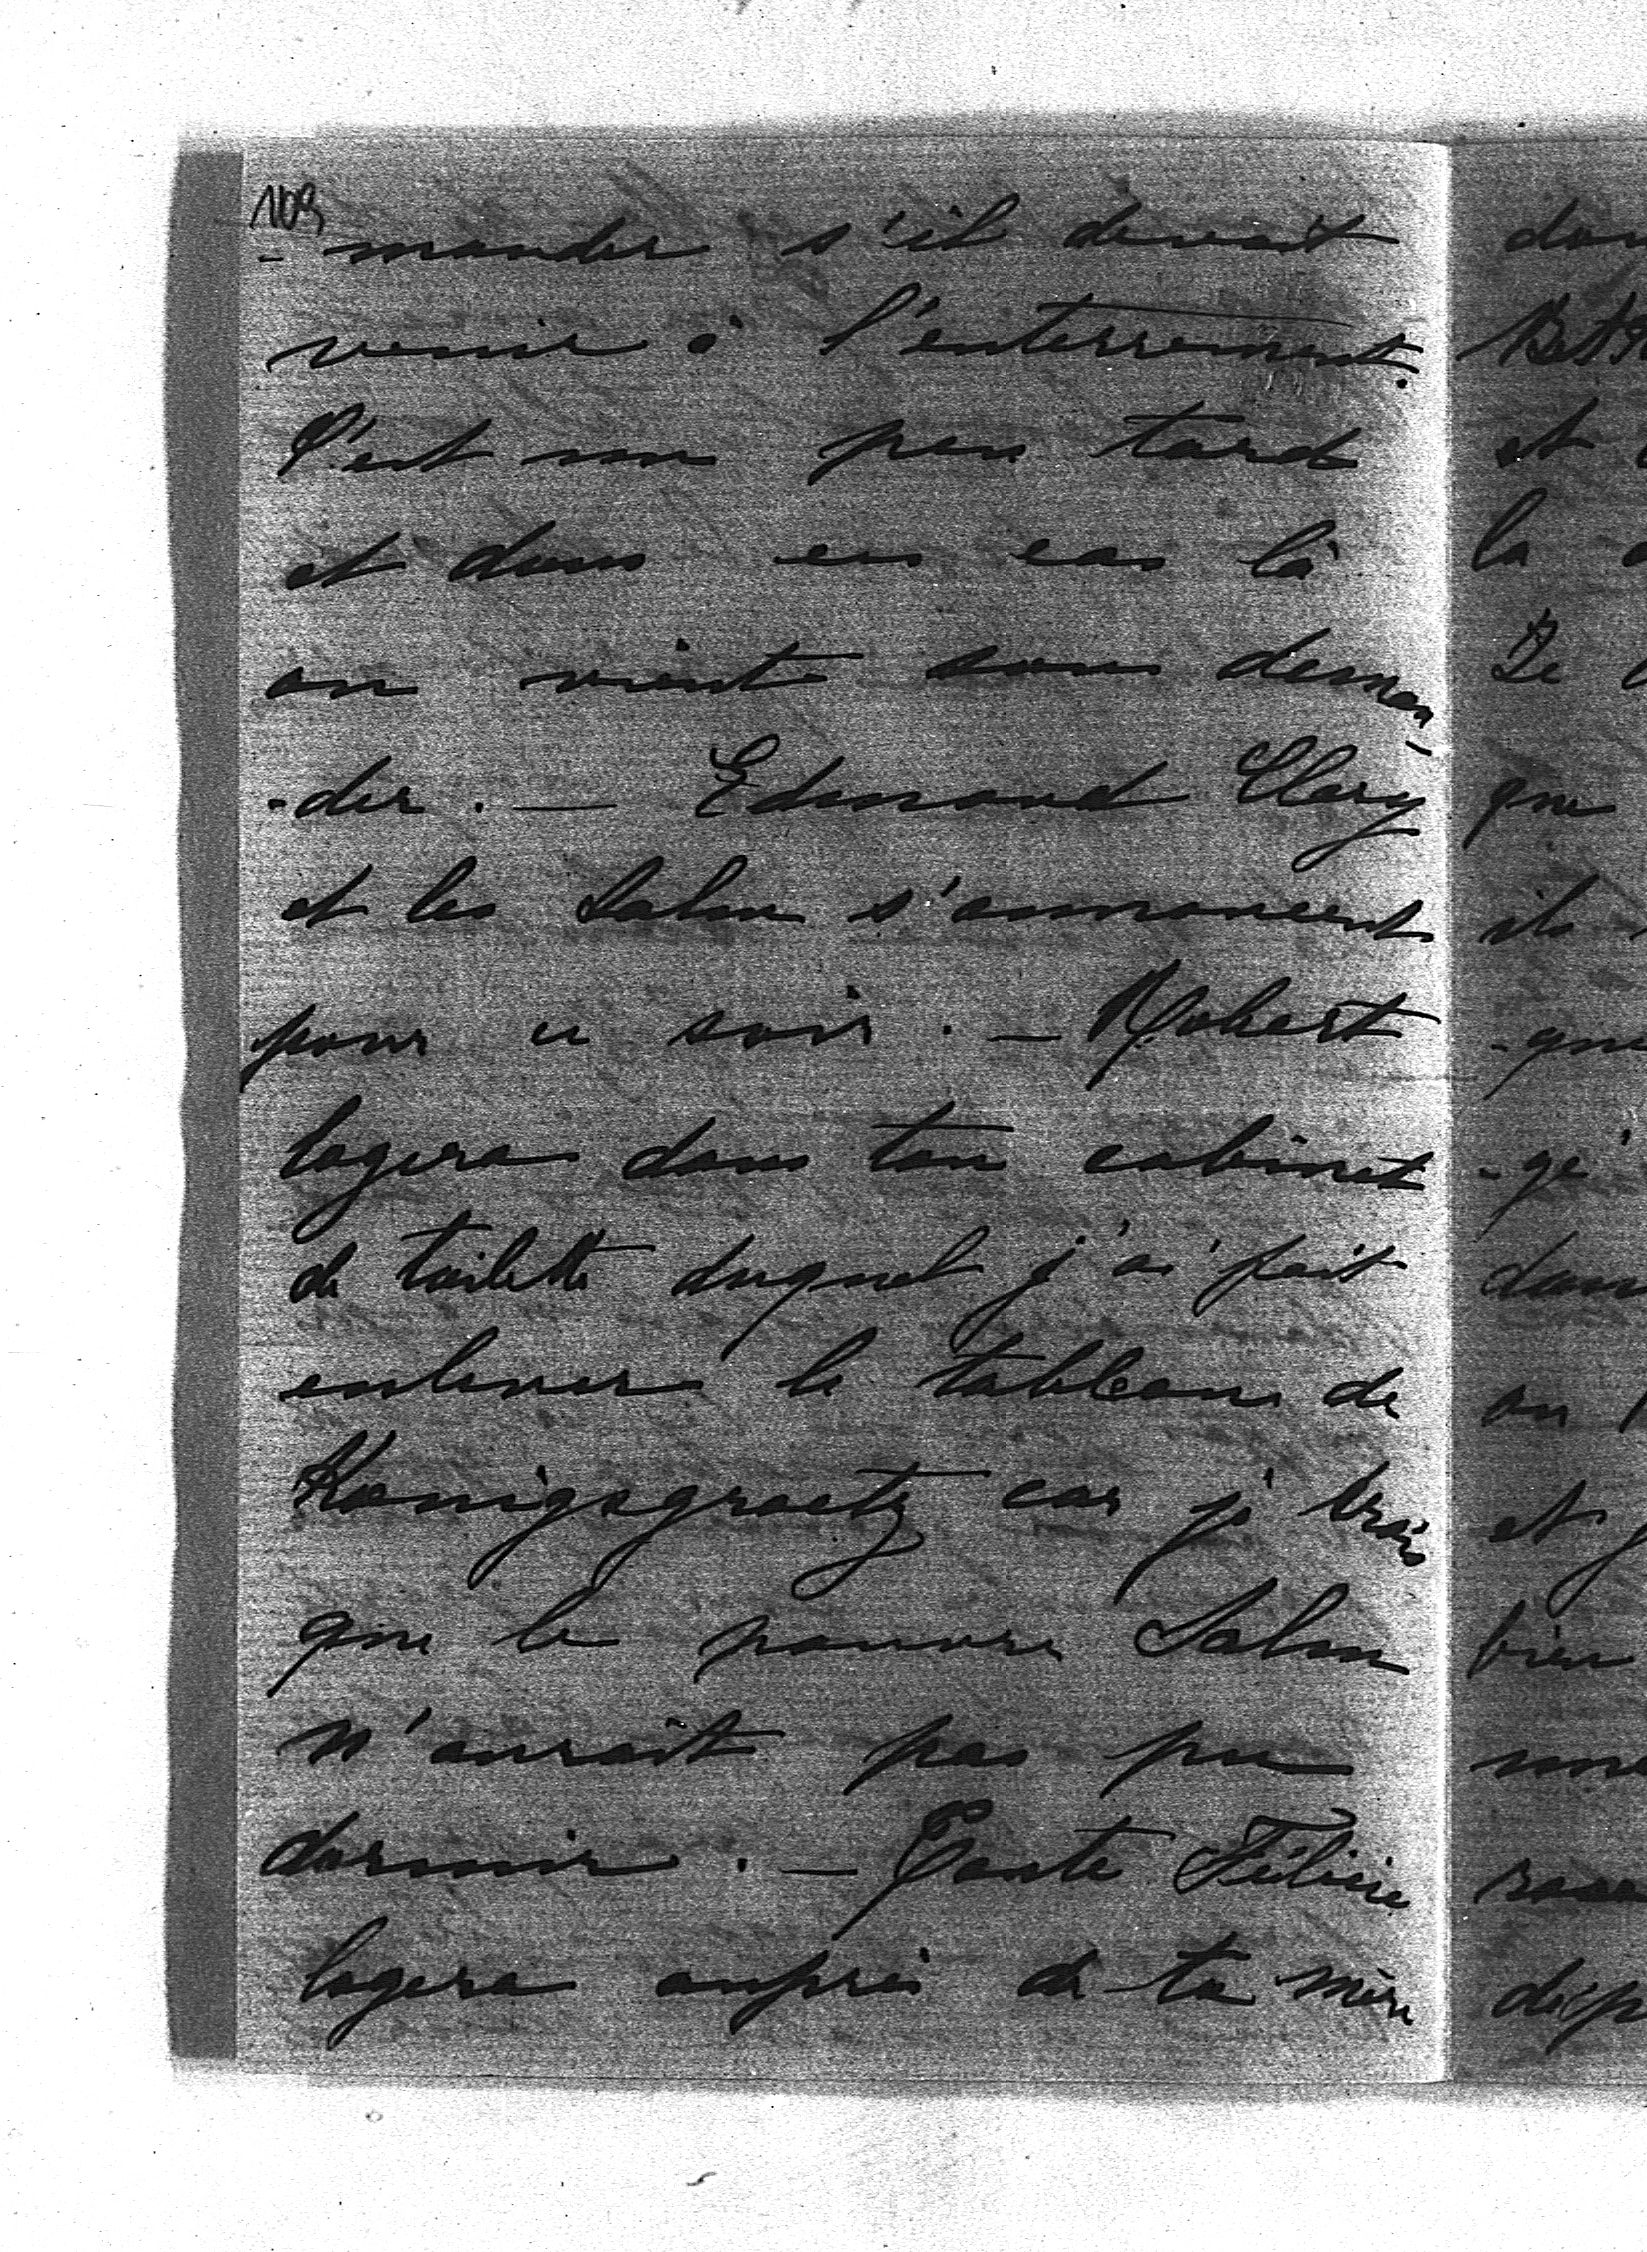 109
-mander s'il devait
venir à l'enterrement.
C'est un peu tard
et dans ces cas là
on vient sans deman-
-der. — Edmond Clary
et les Salm s'annoncent
pour ce soir. — Robert
logera dans ton cabinet
de toilette duquel j'ai fait
enlever le tableau de
Kœnigsgraetz car je crois
que le pauvre Salm
n'aurait pas pu
dormir. — Tante Félicie
logera auprès de ta mère